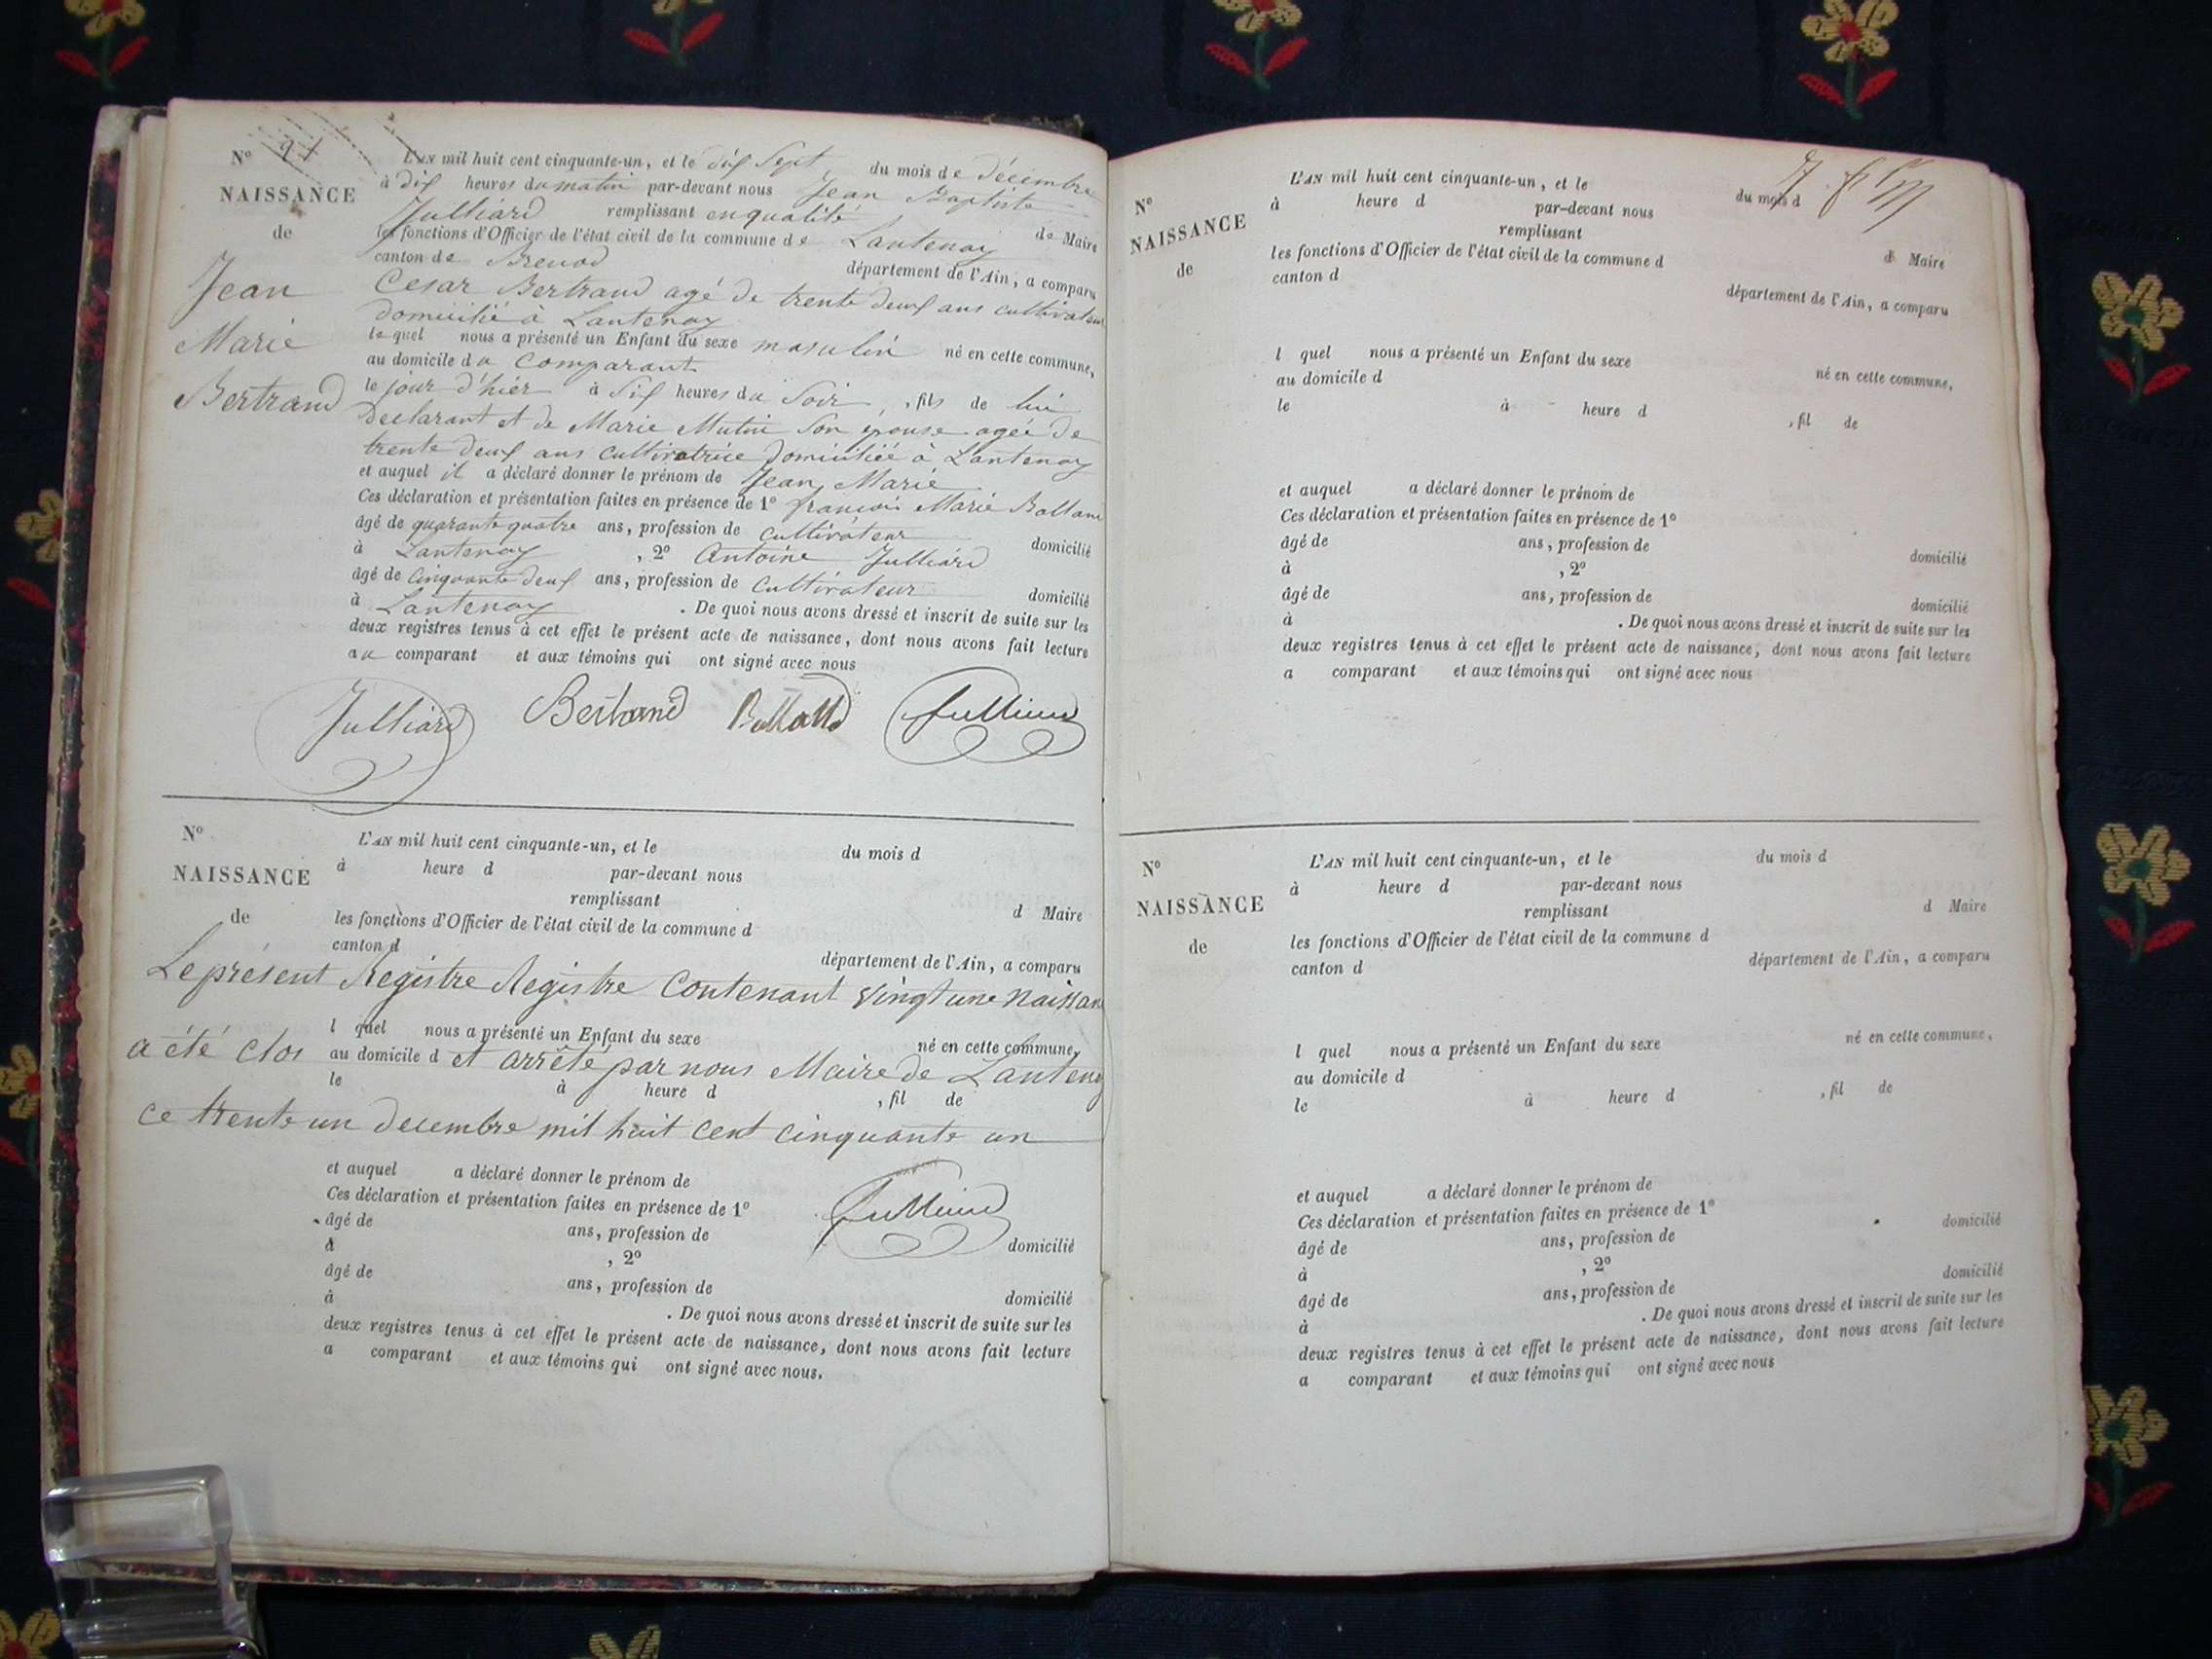 N°
NAISSANCE
de
Jean
Marie
Bertrand
L'AN mil huit cent cinquante-un, et le dix Sept du mois de décembre
à dix heures du matin par-devant nous Jean Baptiste
Julliard remplissant en qualité de Maire
les fonctions d'Officier de l'état civil de la commune de Lantenay
canton de Brenod département de l'Ain, a comparu
Cesar Bertrand agé de trente deux ans cultivateur
domicilié à Lantenay
lequel nous a présenté un Enfant du sexe masculin né en cette commune,
au domicile du comparant
le jour d'hier à Six heures du Soir, fils de lui
declarant et de Marie Mutin Son épouse agée de
trente deux ans cultivatrice domiciliée à Lantenay
et auquel il a déclaré donner le prénom de Jean Marie
Ces déclaration et présentation faites en présence de 1° françois Marie
âgé de quarante quatre ans, profession de cultivateur domicilié
à Lantenay, 2° Antoine Julliard
âgé de cinquante deux ans, profession de cultivateur domicilié
à Lantenay . De quoi nous avons dressé et inscrit de suite sur les
deux registres tenus à cet effet le présent acte de naissance, dont nous avons fait lecture
au comparant et aux témoins qui ont signé avec nous
Julliard Bertrand Julliard
N°
NAISSANCE
de
L'AN mil huit cent cinquante-un, et le du mois d
à heure d par-devant nous
remplissant d Maire
les fonctions d'Officier de l'état civil de la commune d
canton d département de l'Ain, a comparu
Le présent Registre Registre contenant vingt une naissan
l quel nous a présenté un Enfant du sexe né en cette commune,
a été clos et arrêté par nous Maire de Lantenay
au domicile d
le à heure d , fil de
ce trente un decembre mil huit cent cinquante un
et auquel a déclaré donner le prénom de
Ces déclaration et présentation faites en présence de 1°
âgé de ans, profession de domicilié
à , 2°
âgé de ans, profession de domicilié
à . De quoi nous avons dressé et inscrit de suite sur les
deux registres tenus à cet effet le présent acte de naissance, dont nous avons fait lecture
a comparant et aux témoins qui ont signé avec nous.
Julliard
N°
NAISSANCE
de
L'AN mil huit cent cinquante-un, et le du mois d
à heure d par-devant nous
remplissant d Maire
les fonctions d'Officier de l'état civil de la commune d
canton d département de l'Ain, a comparu
l quel nous a présenté un Enfant du sexe né en cette commune,
au domicile d
le à heure d , fil de
et auquel a déclaré donner le prénom de
Ces déclaration et présentation faites en présence de 1°
âgé de ans, profession de domicilié
à , 2°
âgé de ans, profession de domicilié
à . De quoi nous avons dressé et inscrit de suite sur les
deux registres tenus à cet effet le présent acte de naissance, dont nous avons fait lecture
a comparant et aux témoins qui ont signé avec nous
N°
NAISSANCE
de
L'AN mil huit cent cinquante-un, et le du mois d
à heure d par-devant nous
remplissant d Maire
les fonctions d'Officier de l'état civil de la commune d
canton d département de l'Ain, a comparu
l quel nous a présenté un Enfant du sexe né en cette commune,
au domicile d
le à heure d , fil de
et auquel a déclaré donner le prénom de
Ces déclaration et présentation faites en présence de 1°
âgé de ans, profession de domicilié
à , 2°
âgé de ans, profession de domicilié
à . De quoi nous avons dressé et inscrit de suite sur les
deux registres tenus à cet effet le présent acte de naissance, dont nous avons fait lecture
a comparant et aux témoins qui ont signé avec nous